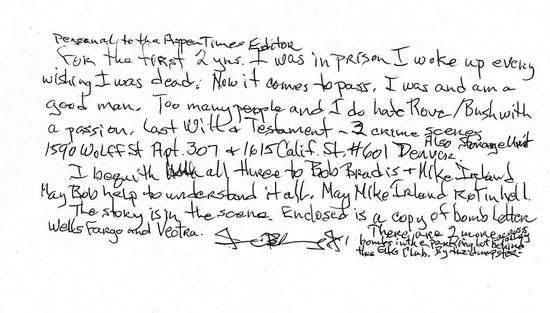 Personal to the Aspen Times Editor
For the first 2 yrs. I was in prison I woke up every
wishing I was dead. Now it comes to pass. I was and am a
good man. Too many people and I do hate Rove/Bush with
a passion. Last Will & Testament - 2 crime scenes
Also Storage Unit
1590 Wolff St Apt. 307 & 1615 Calif. St. #601 Denver.
I bequith all three to Bob Bradis + Mike Irland
May Bob help to understand it all. May Mike Irland Rot in hell.
The story is in the scene. Enclosed is a copy of bomb letter
Wells Fargo and Vectra.
There are 2 more
bombs in the parking lot behind
the Elks Club. By the dumpster